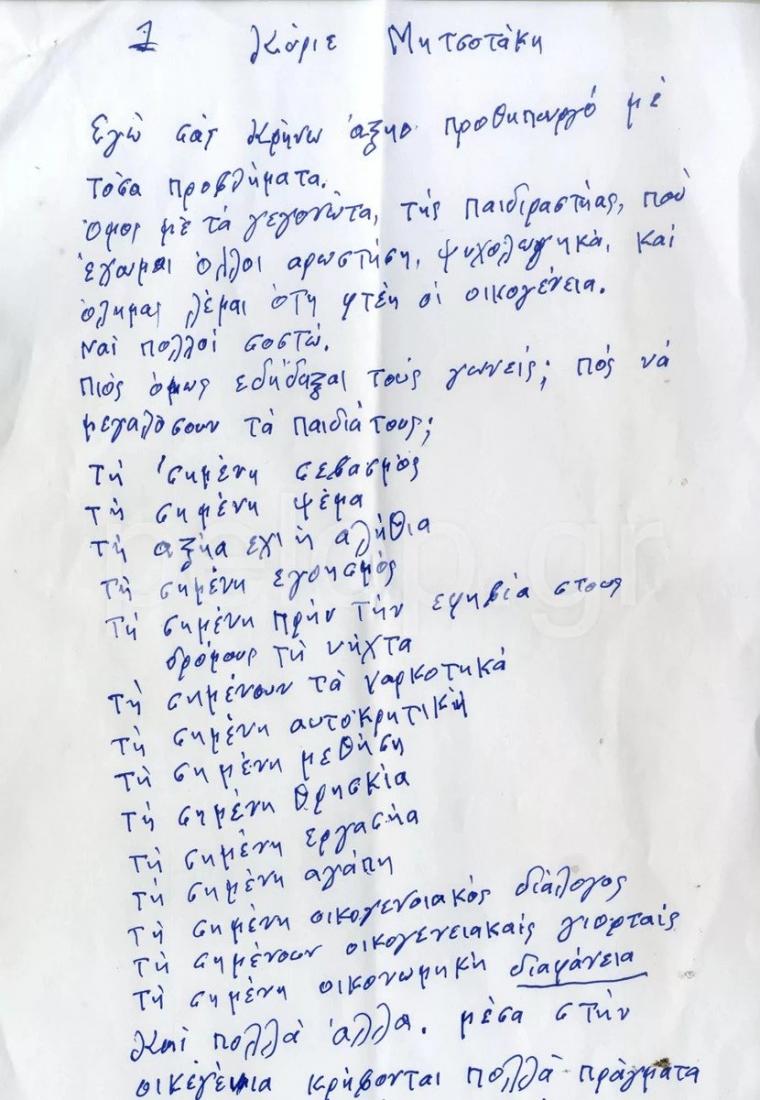 1 Κύριε Μητσοτάκη
Εγώ σάς κρήνω άξηο προθηπουργό μέ
τόσα προβλήματα.
όμος μέ τά γεγονώτα, τής παιδιραστήας, πού
έχωμαι όλλοι αρωστήση, ψυχολωγηκά, καί
όλημας λέμαι ότη φτέη οι οικογένεια.
ναί πολλοί σοστώ.
πιός όμως εδήδαξαι τούς γωνείς; πός νά
μεγαλόσουν τά παιδιά τους;
τή σημένη σεβασμός
τή σημένη ψέμα
τή αξήα εχι ή αλήθια
τή σημένη εγοησμός
τή σημένη πρήν τήν εφηβία στους
δρόμους τή νήχτα
τή σημένουν τά ναρκοτηκά
τή σημένη αυτοκρητική
τή σημένη μεθήση
τή σημένη θρησκία
τή σημένη εργασήα
τή σημένη αγάπη
τή σημένη οικογενοιακός διάλογος
τή σημένουν οικογενειακαίς γιορταίς
τή σημένη οικονωμηκή διαφάνεια
Καί πολλά άλλα. μέσα στήν
κρήβονται πολλά πράγματα
pelop.gr